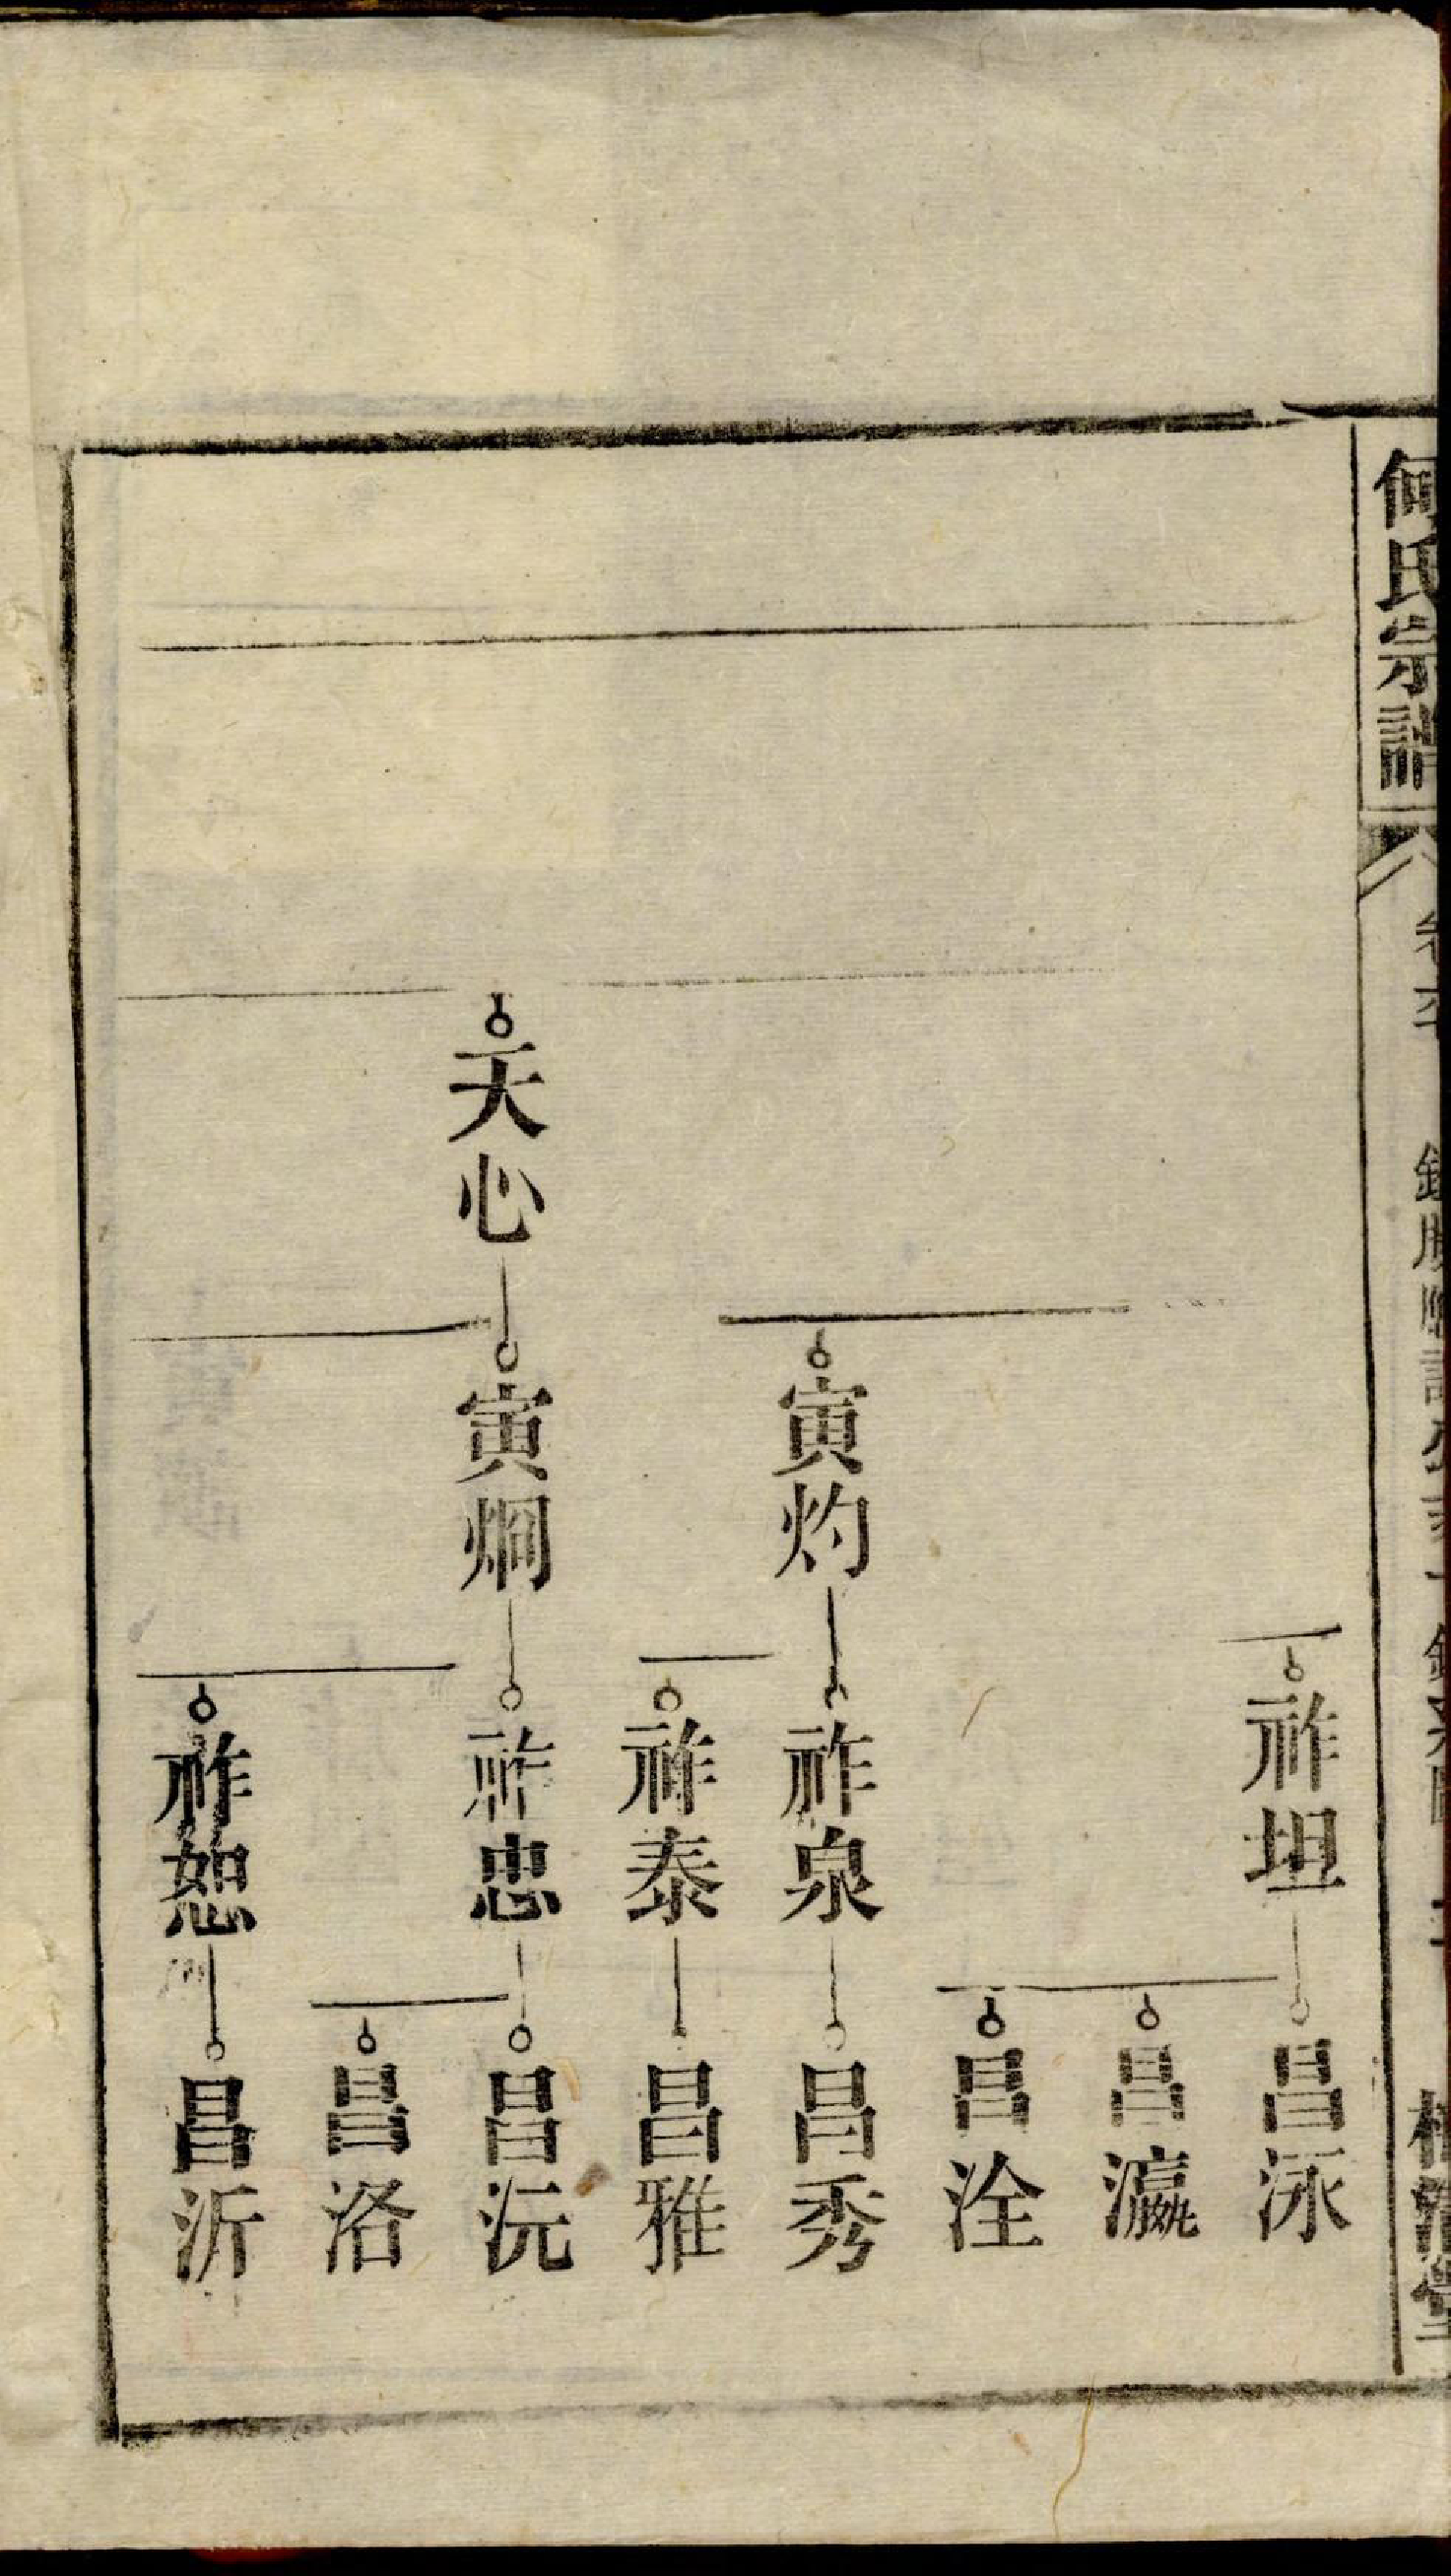 何氏宗譜
祚坦
昌泳
昌瀛
昌洤
寅灼
祚泉
昌秀
祚泰
昌雅
天心
寅烱
祚忠
昌沅
昌洛
祚恕
昌沂